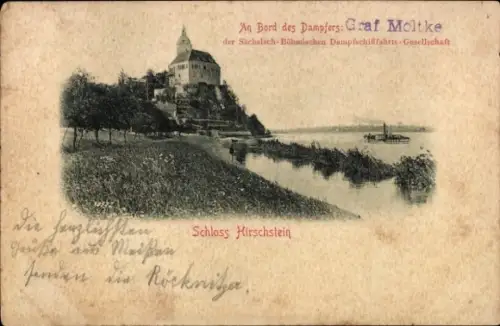 An Bord des Dampfers: Graf Moltke
der Sächsisch-Böhmischen Dampfschiffahrts-Gesellschaft
Schloss Hirschstein
Die herzlichsten
Grüße aus Meißen
senden die Röcknitzer.